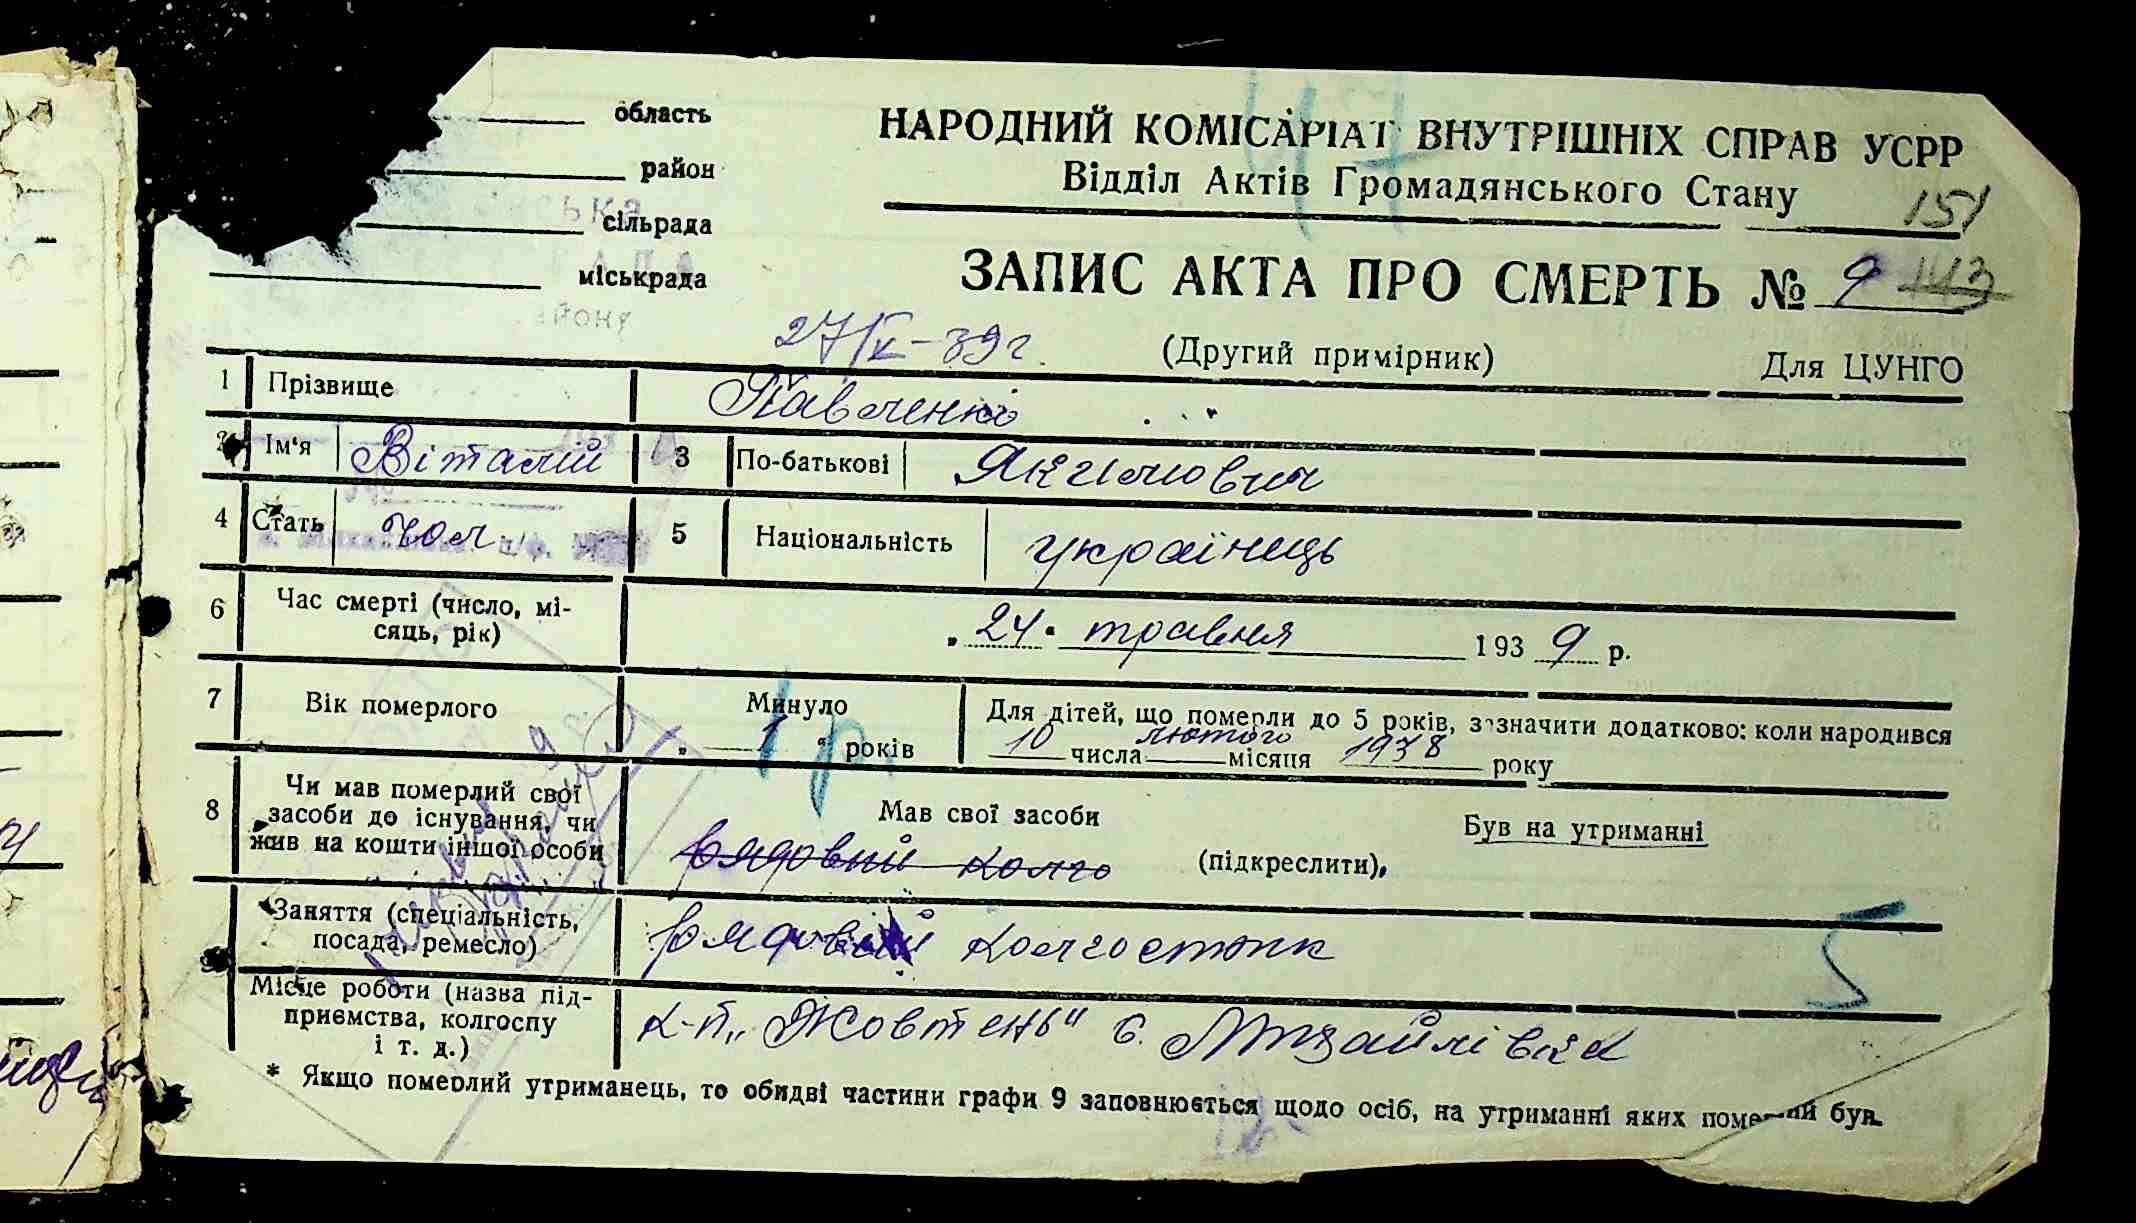 область
район
сільрада
міськрада
НАРОДНИЙ КОМІСАРІАТ ВНУТРІШНІХ СПРАВ УСРР
Відділ Актів Громадянського Стану
151
ЗАПИС АКТА ПРО СМЕРТЬ № 9 143
27/V-39г.
(Другий примірник)
Для ЦУНГО
1 Прізвище Павленко
2 Ім'я Віталій 3 По-батькові Якимович
4 Стать чол. 5 Національність українець
6 Час смерті (число, мі-
сяць, рік)
„24" травня 1939 р.
7 Вік померлого
Минуло
„ 1 " років
1 р.
Для дітей, що померли до 5 років, зазначити додатково: коли народився
10 числа лютого місяця 1938 року
8 Чи мав померлий свої
засоби до існування, чи
жив на кошти іншої особи
Мав свої засоби
Був на утриманні
(підкреслити),
рядовий колго
Заняття (спеціальність,
посада, ремесло)
рядовий колгоспник
5
Місце роботи (назва під-
приємства, колгоспу
і т. д.)
к-п „Жовтень" с. Михайлівка
* Якщо померлий утриманець, то обидві частини графи 9 заповнюється щодо осіб, на утриманні яких померлий був.